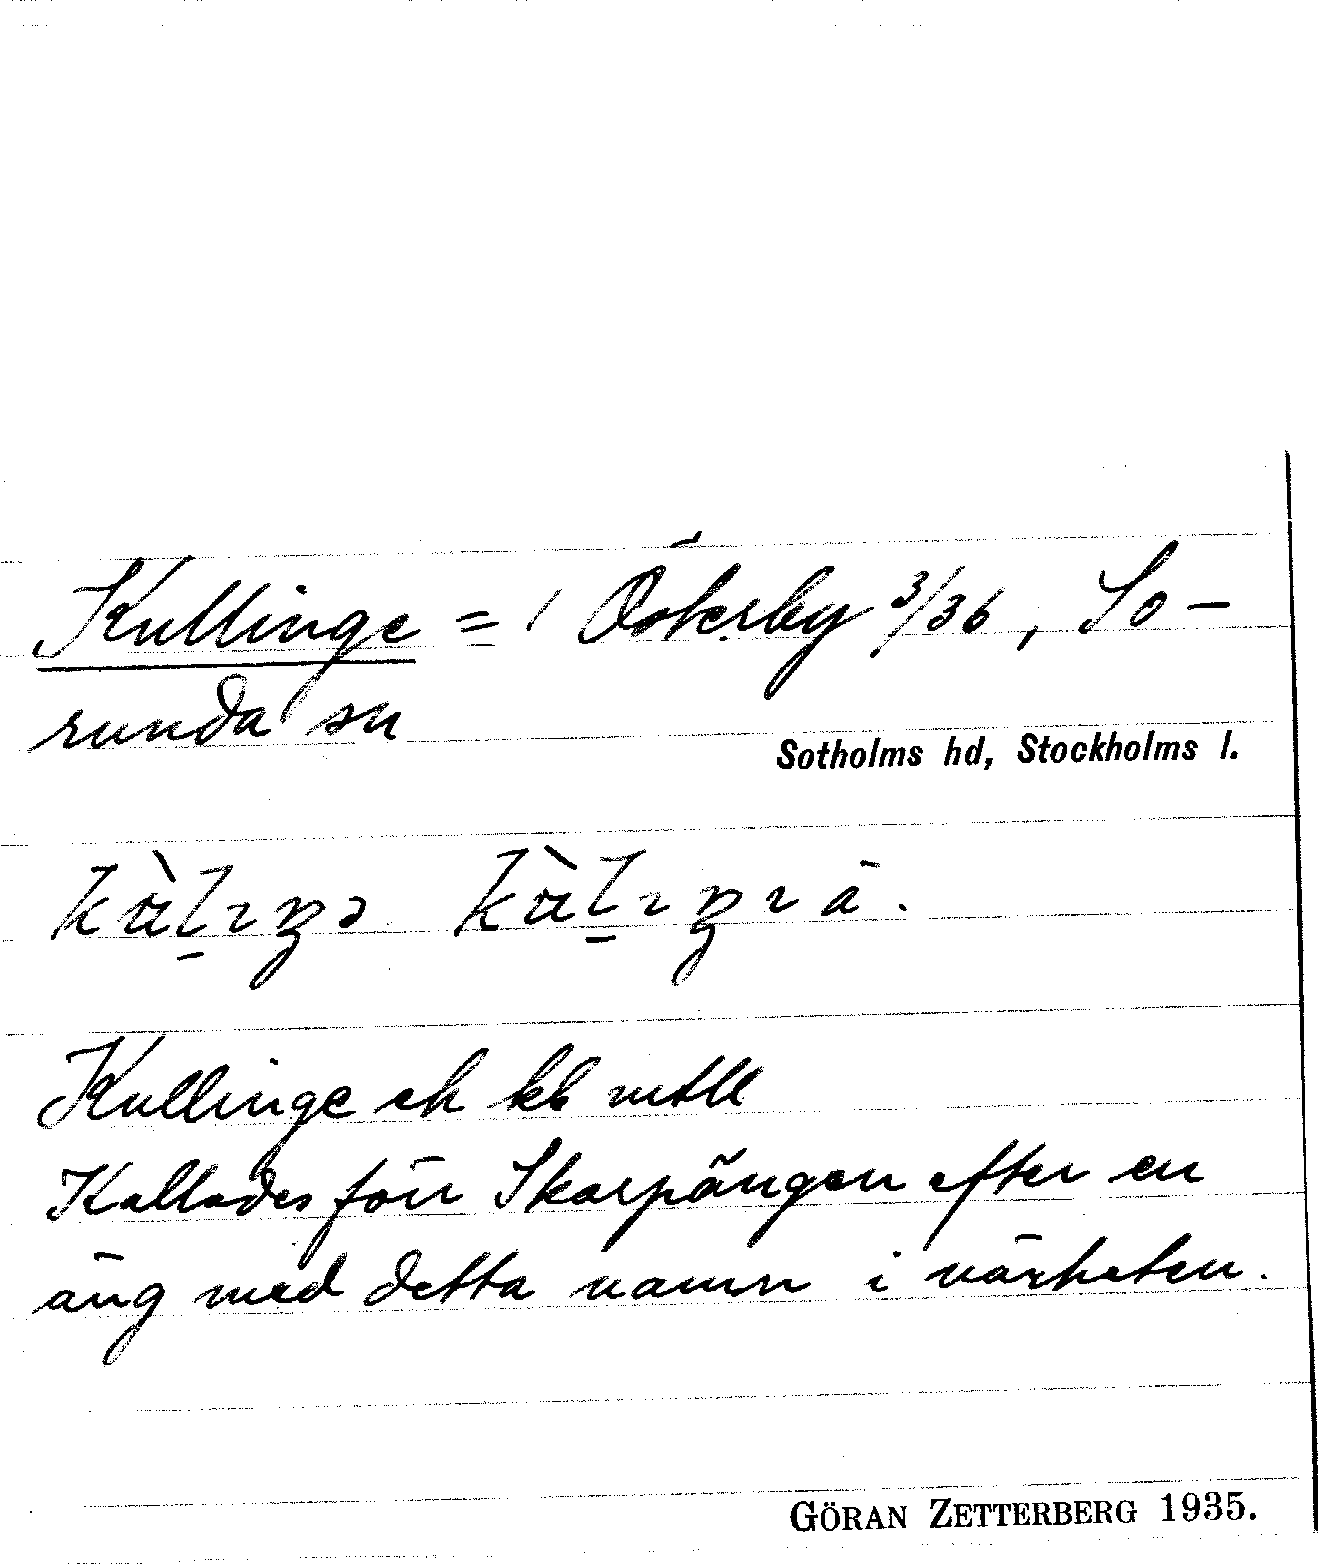 Kullinge = / Österby 3/36, So-
runda sn
Sotholms hd, Stockholms l.
Kullinge ek kb mtll
Kallades förr Skarpängen efter en
äng med detta namn i närheten.
GÖRAN ZETTERBERG 1935.